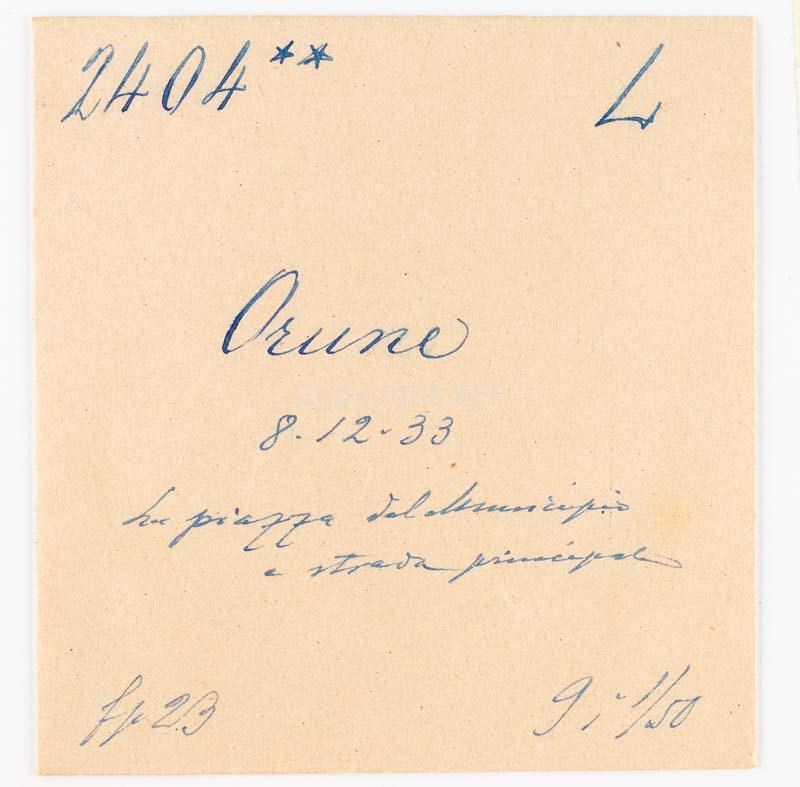 2404** L
Orune
8-12-33
La piazza del Municipio
e strada principale
fp 23 9 i 1/50
Copyright SFF